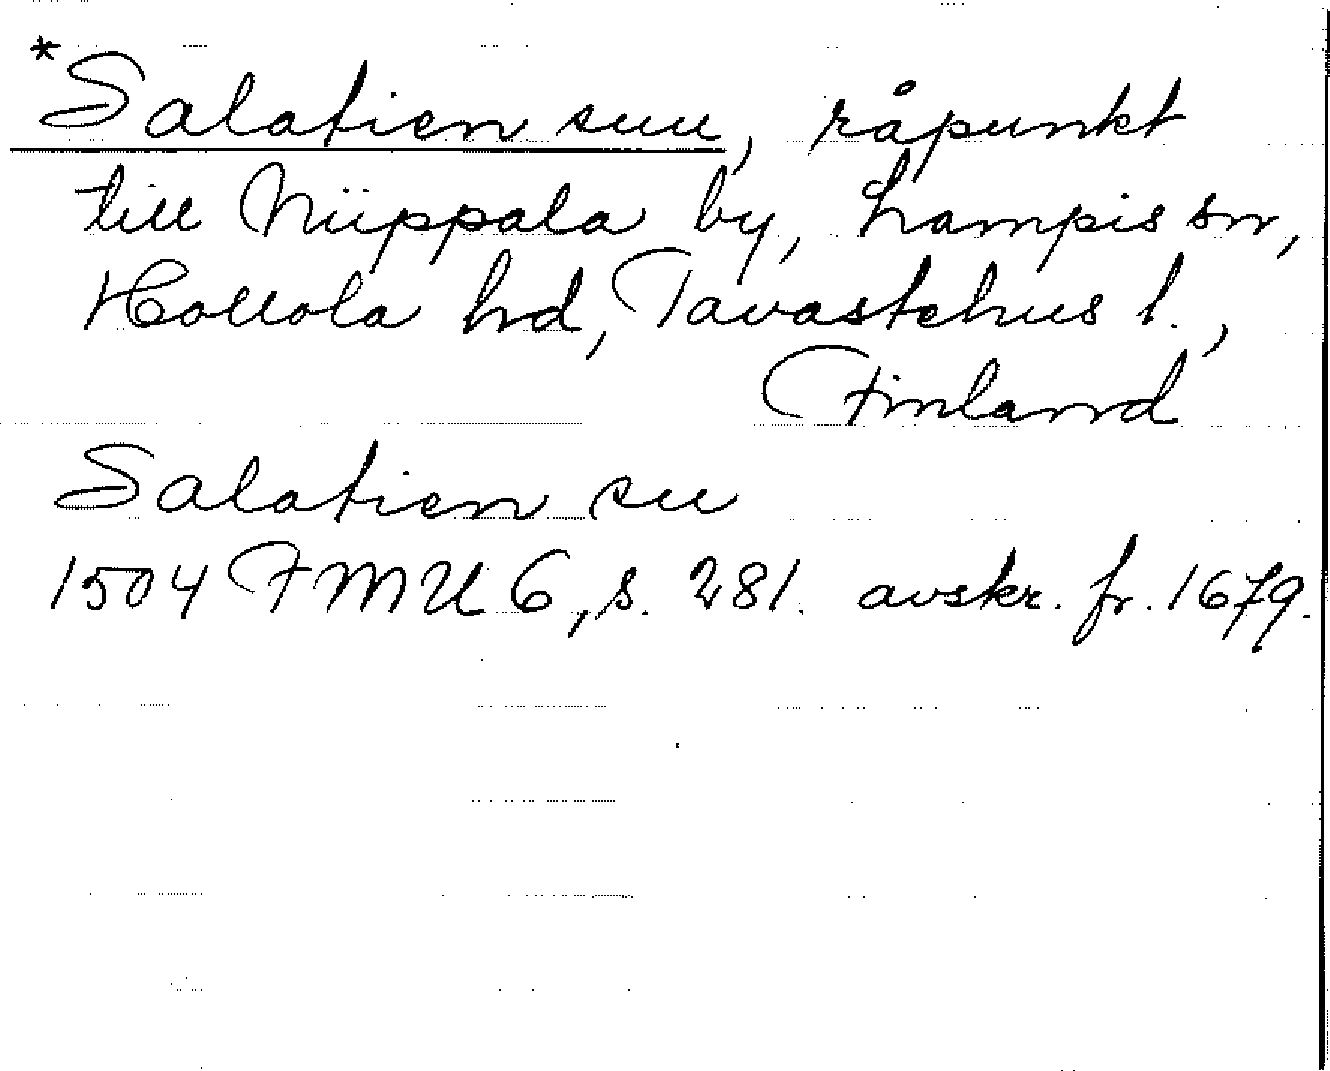 *Salatien suu, råpunkt
till Niippala by, Lampis sn,
Hollola hd, Tavastehus l.,
Finland
Salatien su
1504 FMU 6, s. 281. avskr. fr. 1679.